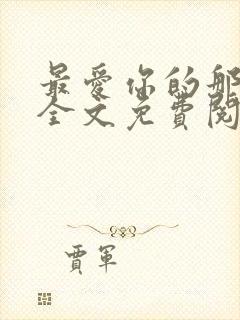 最爱你的那
全文免费阅
贾军